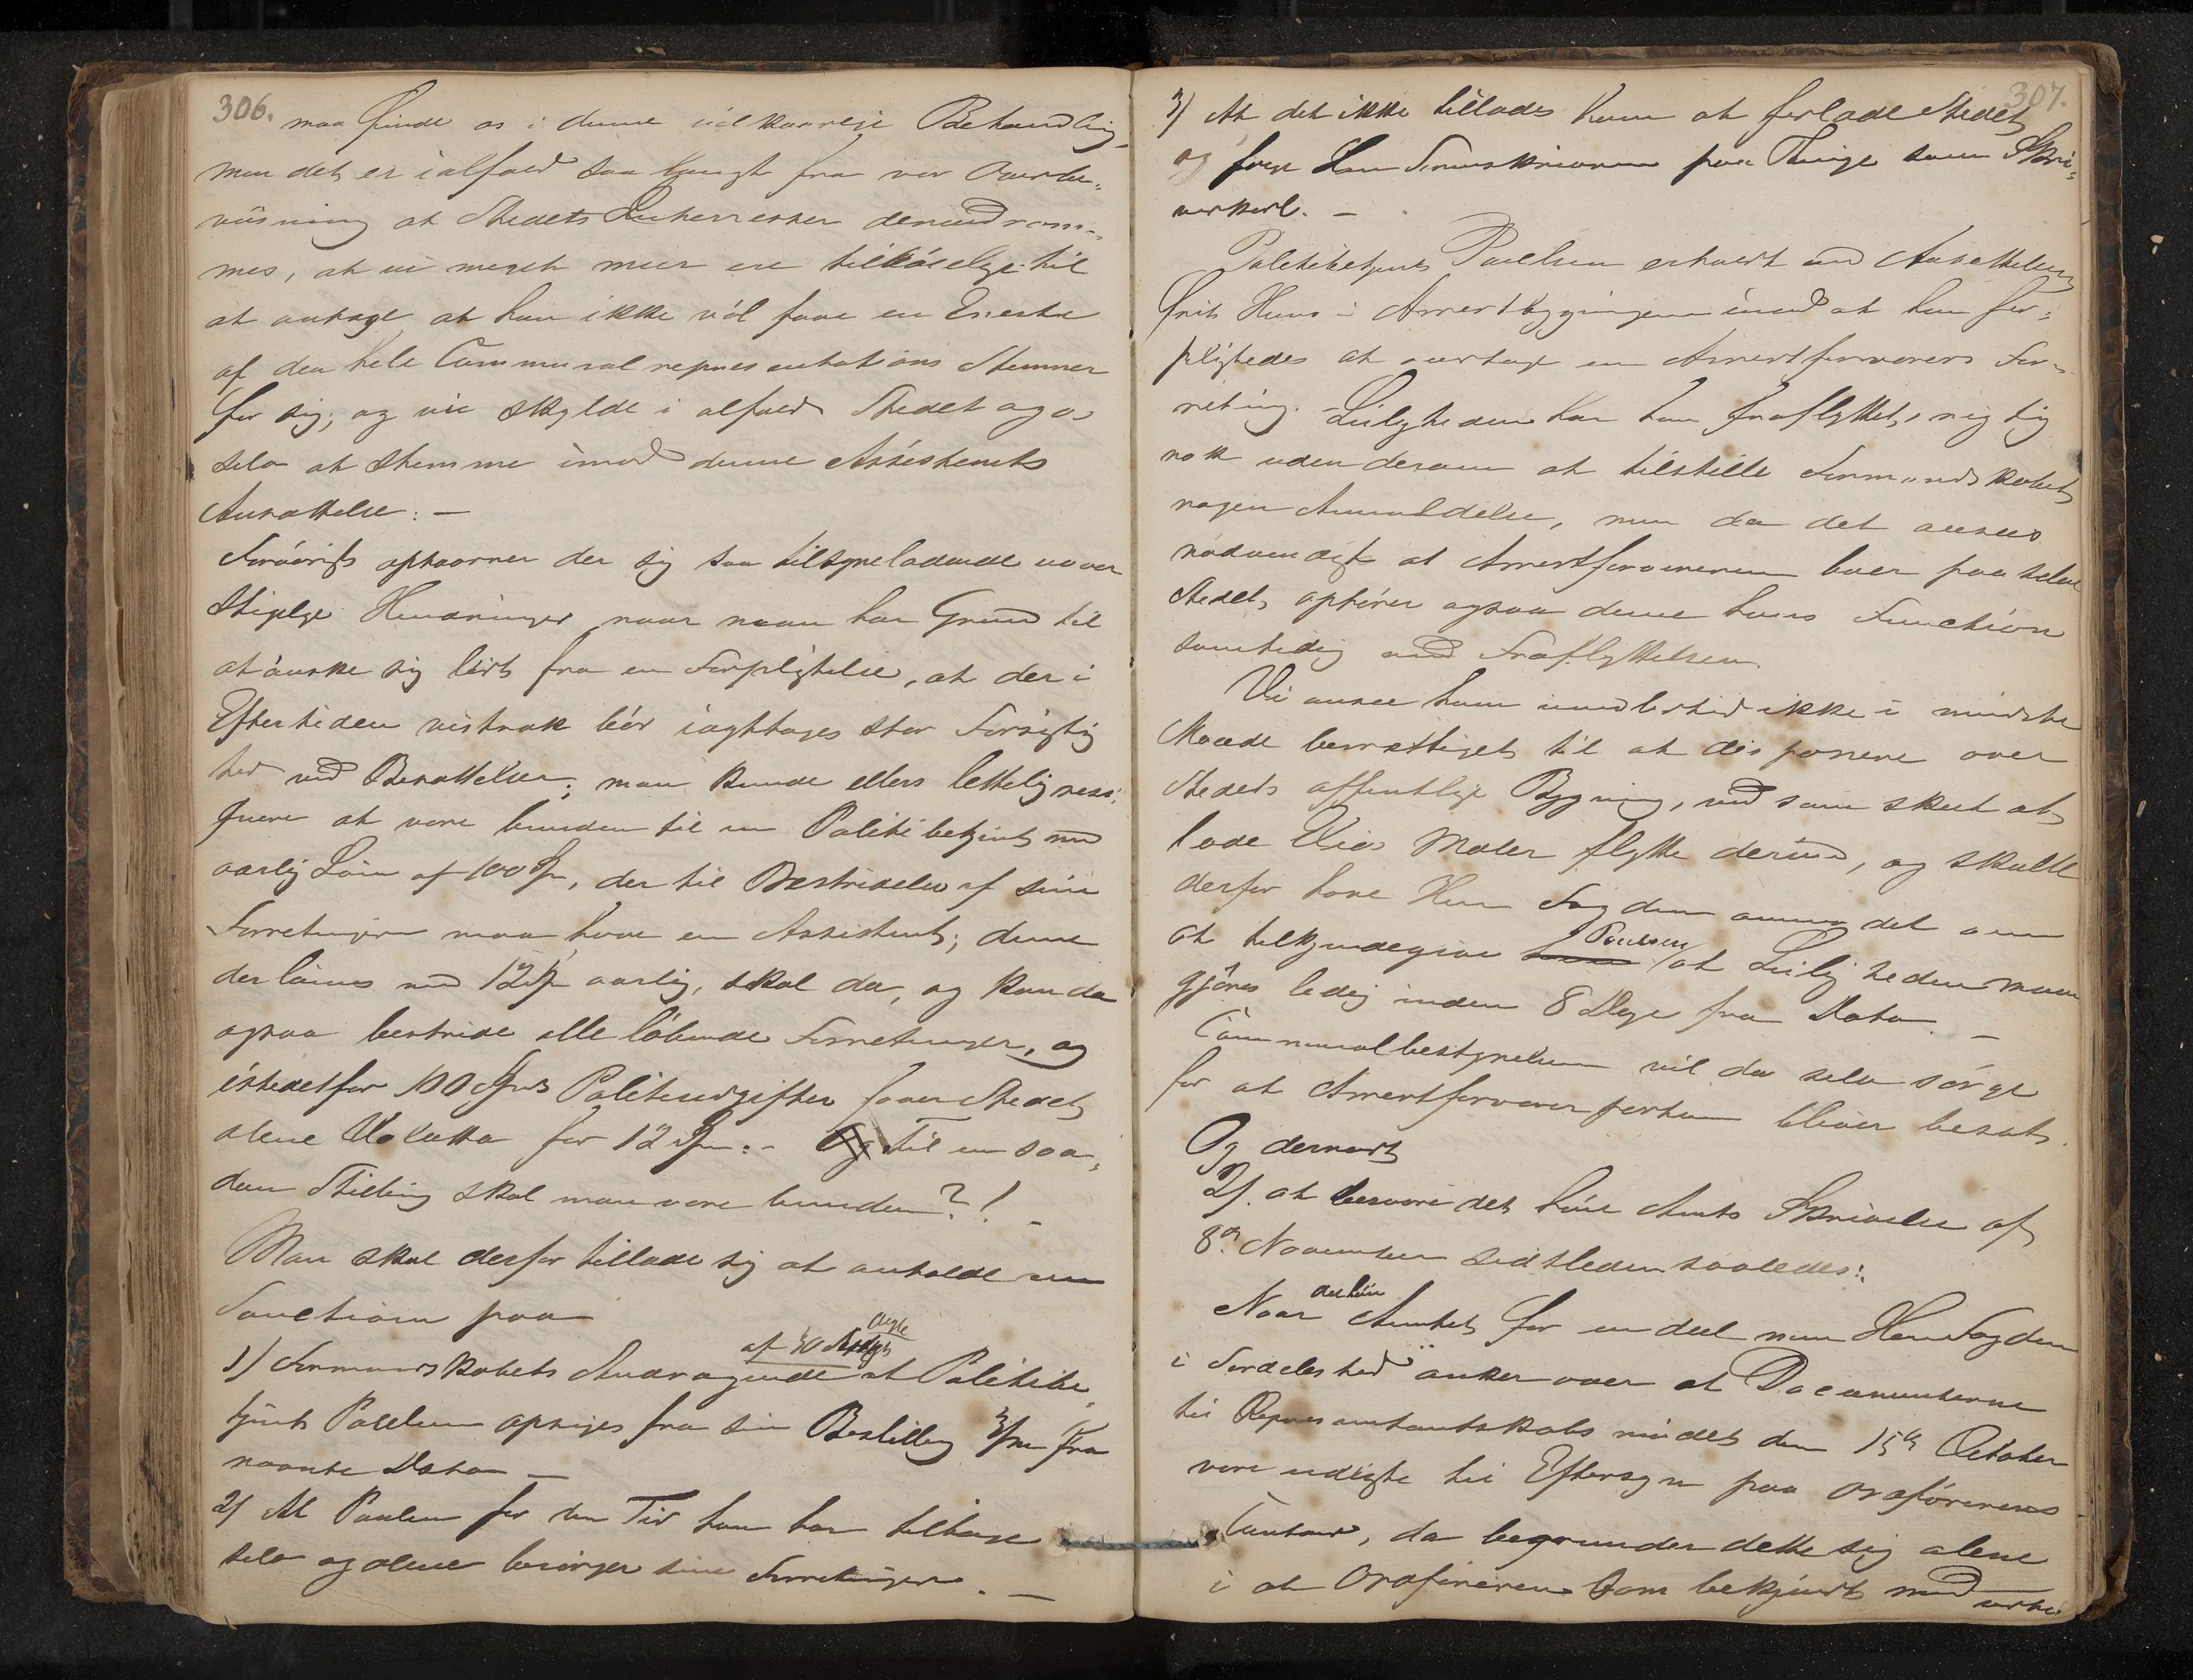 306.
maa finde os i denne vilkaarlige Behandling
men det er ialfald saa langt fra vor Overbe,
viisning at Stedets Interesser derved rem-
mes, at vi meget meer ere tilbøielige til
at antage at han ikke vil faae en Eneste
af den hele Communalrepresentations Stemmer
for sig; og vi skylde i alfald Stedet og os
selv at stemme imod denne Assistents
Ansættelse: —
Forøvrigt optaarner der sig saa tilsyneladende uover
stigelige Hindringer naar man har Grund til
at ønske sig løst fra en Forpligtelse, at der i
Eftertiden vistnok bør iagttages stor Forsigtig
hed ved Besættelser; man kunde ellers lettelig resi,
gnere at være bunden til en Politibetjent med
aarlig Løn af 100 Sp, der til Bestridelse af sine
Forretninger maa have en Assistent; denne
der lønnes med 12 Sp aarlig, skal da, og kan da
ogsaa bestride alle løbende Forretninger, og
istedetfor 100 Spds Politiudgifter faaer Stedet
alene Valutta for 12 Sp: - Og Til en saa,
dan Stilling skal man være bunden?! -
Man skal derfor tillade sig at anholde om
Sanction paa
1) Formandskabets Andragende af 30 August at Politibe,
tjent Paulsen opsiges fra sin Bestilling 3/m fra
nævnte Dato —
2) At Paulsen for den Tid han har tilbage
selv og alene besørger sine Forretninger. —
307.
3) At det ikke tillades ham at forlade Stedet
og følge Han Sorenskriveren paa Thinge som Skri,
verkarl. —
Politibetjent Paulsen erholdt ved Ansættelsen
frit Huus i Arrestbygningen imod at han for,
pligtedes at overtage en Arrestforvarers For-
retning. Leiligheden har han fraflyttet, rigtig
nok uden derom at tilstille Formandskabet
nogen Anmeldelse, men da det ansees
nødvendigt at Arrestforvareren boer paa selve
Stedet, ophører ogsaa denne hans Function
samtidig med Fraflyttelsen.
Vi ansee ham imidlertid ikke i mindste
Maade berettiget til at disponere over
Stedets offentlige Bygning, ved som skeet at
lade Maler flytte derind, og skulde
derfor have Herr Fogden anmodet om
at tilkjendegive Paulsen at Leiligheden maa
gjøres ledig inden 8 Dage fra Dato. —
Communalbestyrelsen vil da selv sørge
for at Arrestforvarerposten bliver besat.
Og dernæst
2). at besvare det høie Amts Skrivelse af
8de November sidstleden saaledes:
Naar det høie Amtet for en deel men Herr Fogden
i Særdeleshed anker over at Documenterne
til Representantskabsmødet den 15de October
vare udlagte til Eftersyn paa Ordførerens
Contoir, da begrunder dette sig alene
i at Ordføreren som bekjendt med